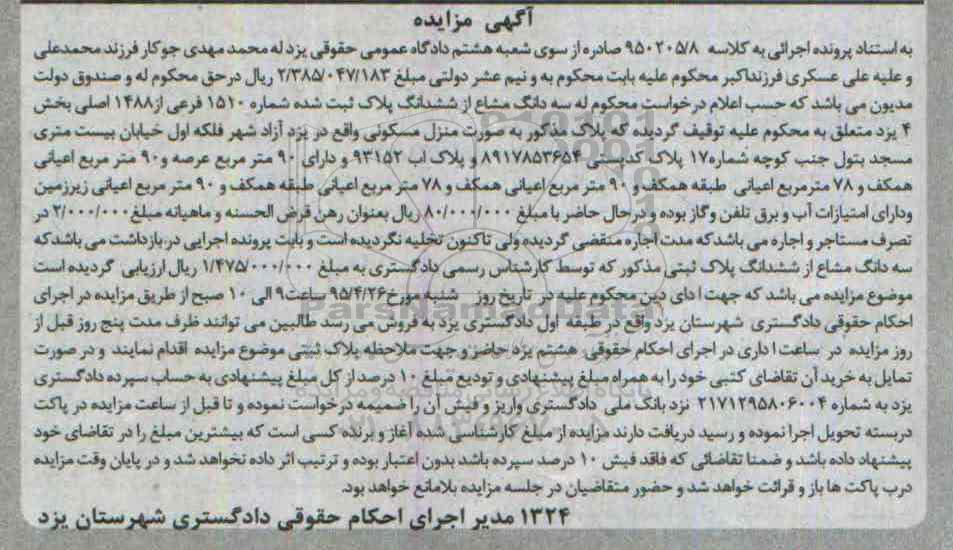 آگهی مزایده
به استناد پرونده اجرائی به کلاسه ۹۵۰۲۰۵/۸ صادره از سوی شعبه هشتم دادگاه عمومی حقوقی یزد له محمد مهدی جوکار فرزند محمدعلی
و علیه علی عسکری فرزنداکبر محکوم علیه بابت محکوم به و نیم عشر دولتی مبلغ ۲/۳۸۵/۰۴۷/۱۸۳ ریال درحق محکوم له و صندوق دولت
مدیون می باشد که حسب اعلام درخواست محکوم له سه دانگ مشاع از ششدانگ پلاک ثبت شده شماره ۱۵۱۰ فرعی از۱۴۸۸ اصلی بخش
۴ یزد متعلق به محکوم علیه توقیف گردیده که پلاک مذکور به صورت منزل مسکونی واقع در یزد آزاد شهر فلکه اول خیابان بیست متری
مسجد بتول جنب کوچه شماره۱۷ پلاک کدپستی ۸۹۱۷۸۵۳۶۵۴ و پلاک اب ۹۳۱۵۲ و دارای ۹۰ متر مربع عرصه و۹۰ متر مربع اعیانی
همکف و ۷۸ مترمربع اعیانی طبقه همکف و ۹۰ متر مربع اعیانی همکف و ۷۸ متر مربع اعیانی طبقه همکف و ۹۰ متر مربع اعیانی زیرزمین
ودارای امتیازات آب و برق تلفن وگاز بوده و درحال حاضر با مبلغ ۸۰/۰۰۰/۰۰۰ ریال بعنوان رهن قرض الحسنه و ماهیانه مبلغ۲/۰۰۰/۰۰۰ در
تصرف مستاجر و اجاره می باشدکه مدت اجاره منقضی گردیده ولی تاکنون تخلیه نگردیده است و بابت پرونده اجرایی در بازداشت می باشدکه
سه دانگ مشاع از ششدانگ پلاک ثبتی مذکور که توسط کارشناس رسمی دادگستری به مبلغ ۱/۴۷۵/۰۰۰/۰۰۰ ریال ارزیابی گردیده است
موضوع مزایده می باشد که جهت ادای دین محکوم علیه در تاریخ روز شنبه مورخ۹۵/۴/۲۶ ساعت۹ الی ۱۰ صبح از طریق مزایده در اجرای
احکام حقوقی دادگستری شهرستان یزد واقع در طبقه اول دادگستری یزد به فروش می رسد طالبین می توانند ظرف مدت پنج روز قبل از
روز مزایده در ساعت اداری در اجرای احکام حقوقی هشتم یزد حاضر و جهت ملاحظه پلاک ثبتی موضوع مزایده اقدام نمایند و در صورت
تمایل به خرید آن تقاضای کتبی خود را به همراه مبلغ پیشنهادی و تودیع مبلغ ۱۰ درصد از کل مبلغ پیشنهادی به حساب سپرده دادگستری
یزد به شماره ۲۱۷۱۲۹۵۸۰۶۰۰۴ نزد بانک ملی دادگستری واریز و فیش آن را ضمیمه درخواست نموده و تا قبل از ساعت مزایده در پاکت
دربسته تحویل اجرا نموده و رسید دریافت دارند مزایده از مبلغ کارشناسی شده آغاز و برنده کسی است که بیشترین مبلغ را در تقاضای خود
پیشنهاد داده باشد و ضمنا تقاضائی که فاقد فیش ۱۰ درصد سپرده باشد بدون اعتبار بوده و ترتیب اثر داده نخواهد شد و در پایان وقت مزایده
درب پاکت ها باز و قرائت خواهد شد و حضور متقاضیان در جلسه مزایده بلامانع خواهد بود.
۱۳۲۴ مدیر اجرای احکام حقوقی دادگستری شهرستان یزد
ParsNamadData